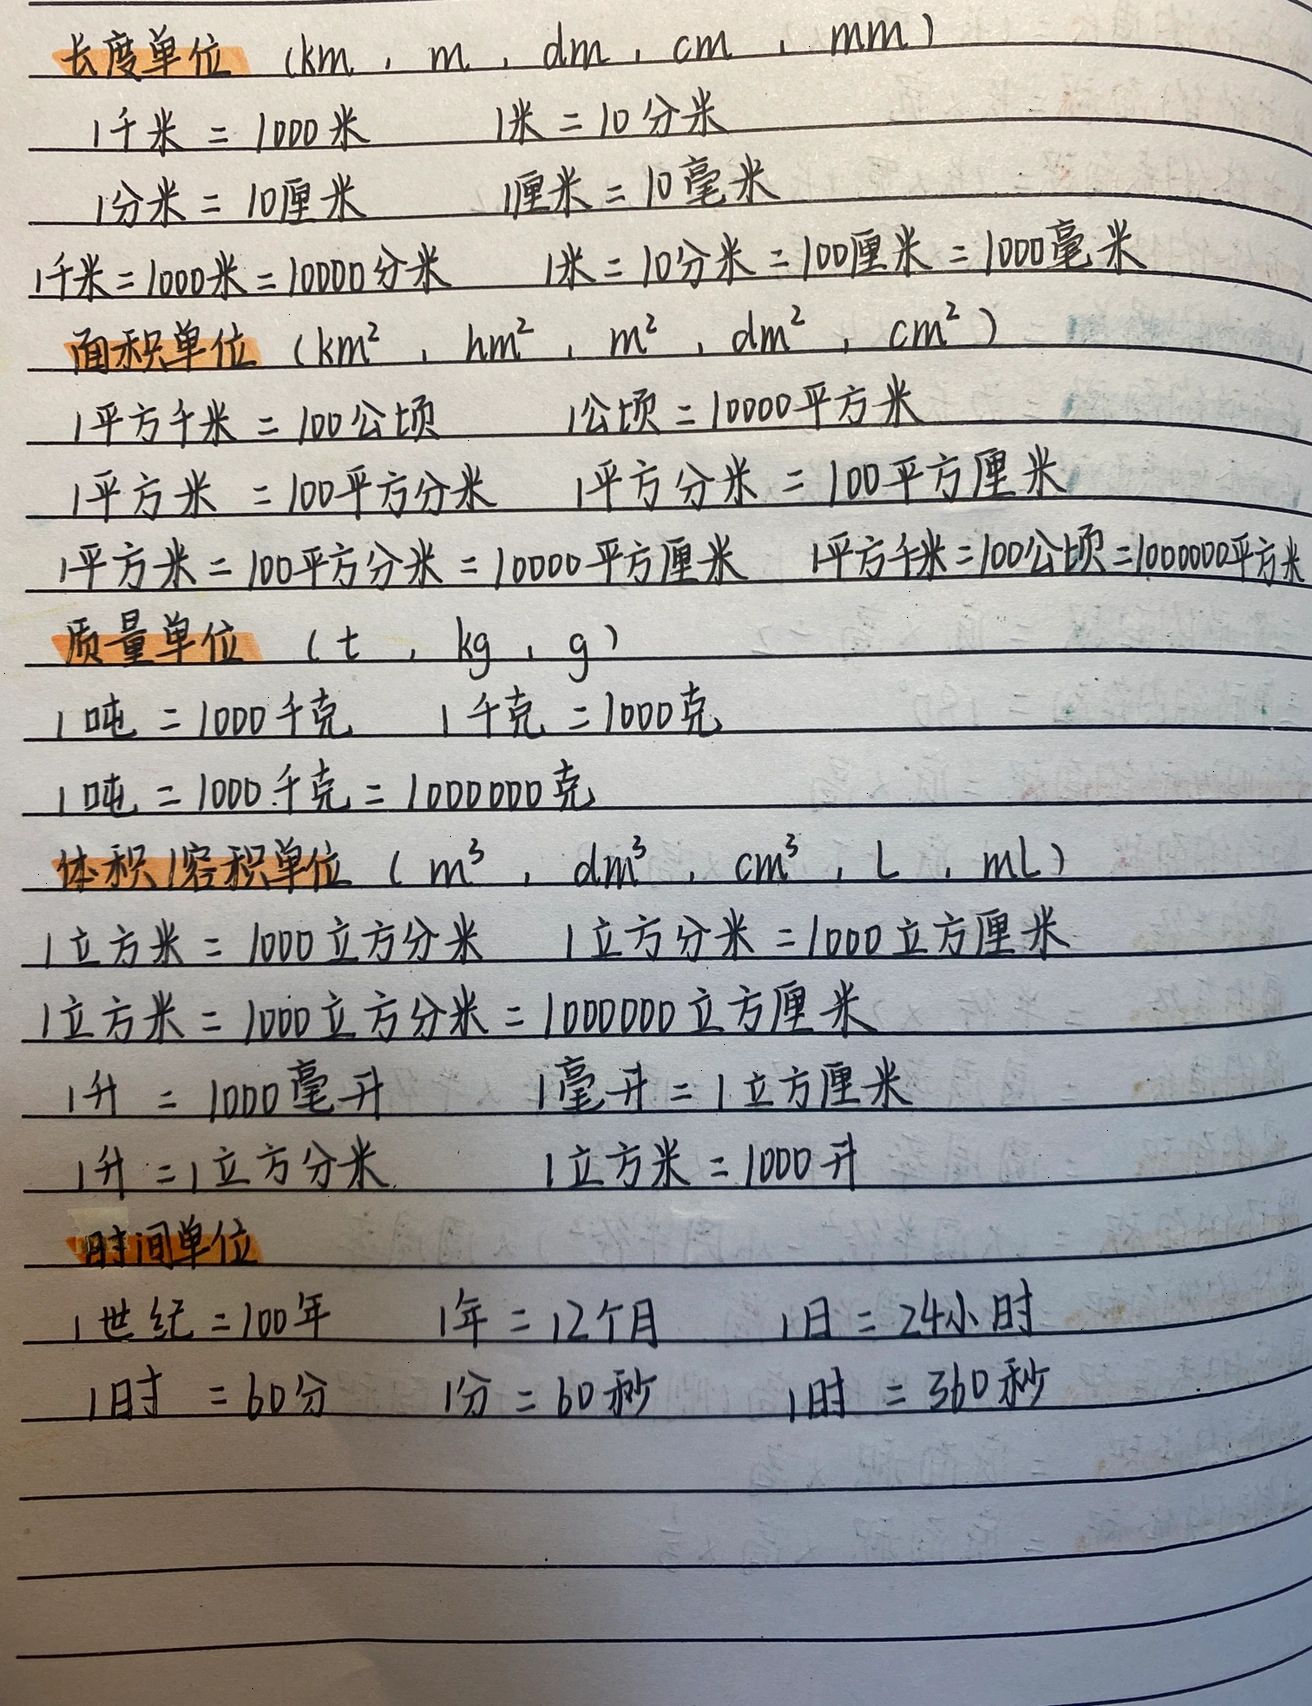 长度单位（km，m，dm，cm，mm）
1千米=1000米 1米=10分米
1分米=10厘米 1厘米=10毫米
1千米=1000米=10000分米 1米=10分米=100厘米=1000毫米
面积单位（km²，hm²，m²，dm²，cm²）
1平方千米=100公顷 1公顷=10000平方米
1平方米=100平方分米 1平方分米=100平方厘米
1平方米=100平方分米=10000平方厘米 1平方千米=100公顷=1000000平方米
质量单位（t，kg，g）
1吨=1000千克 1千克=1000克
1吨=1000千克=1000000克
体积/容积单位（m³，dm³，cm³，L，mL）
1立方米=1000立方分米 1立方分米=1000立方厘米
1立方米=1000立方分米=1000000立方厘米
1升=1000毫升 1毫升=1立方厘米
1升=1立方分米 1立方米=1000升
时间单位
1世纪=100年 1年=12个月 1日=24小时
1时=60分 1分=60秒 1时=360秒